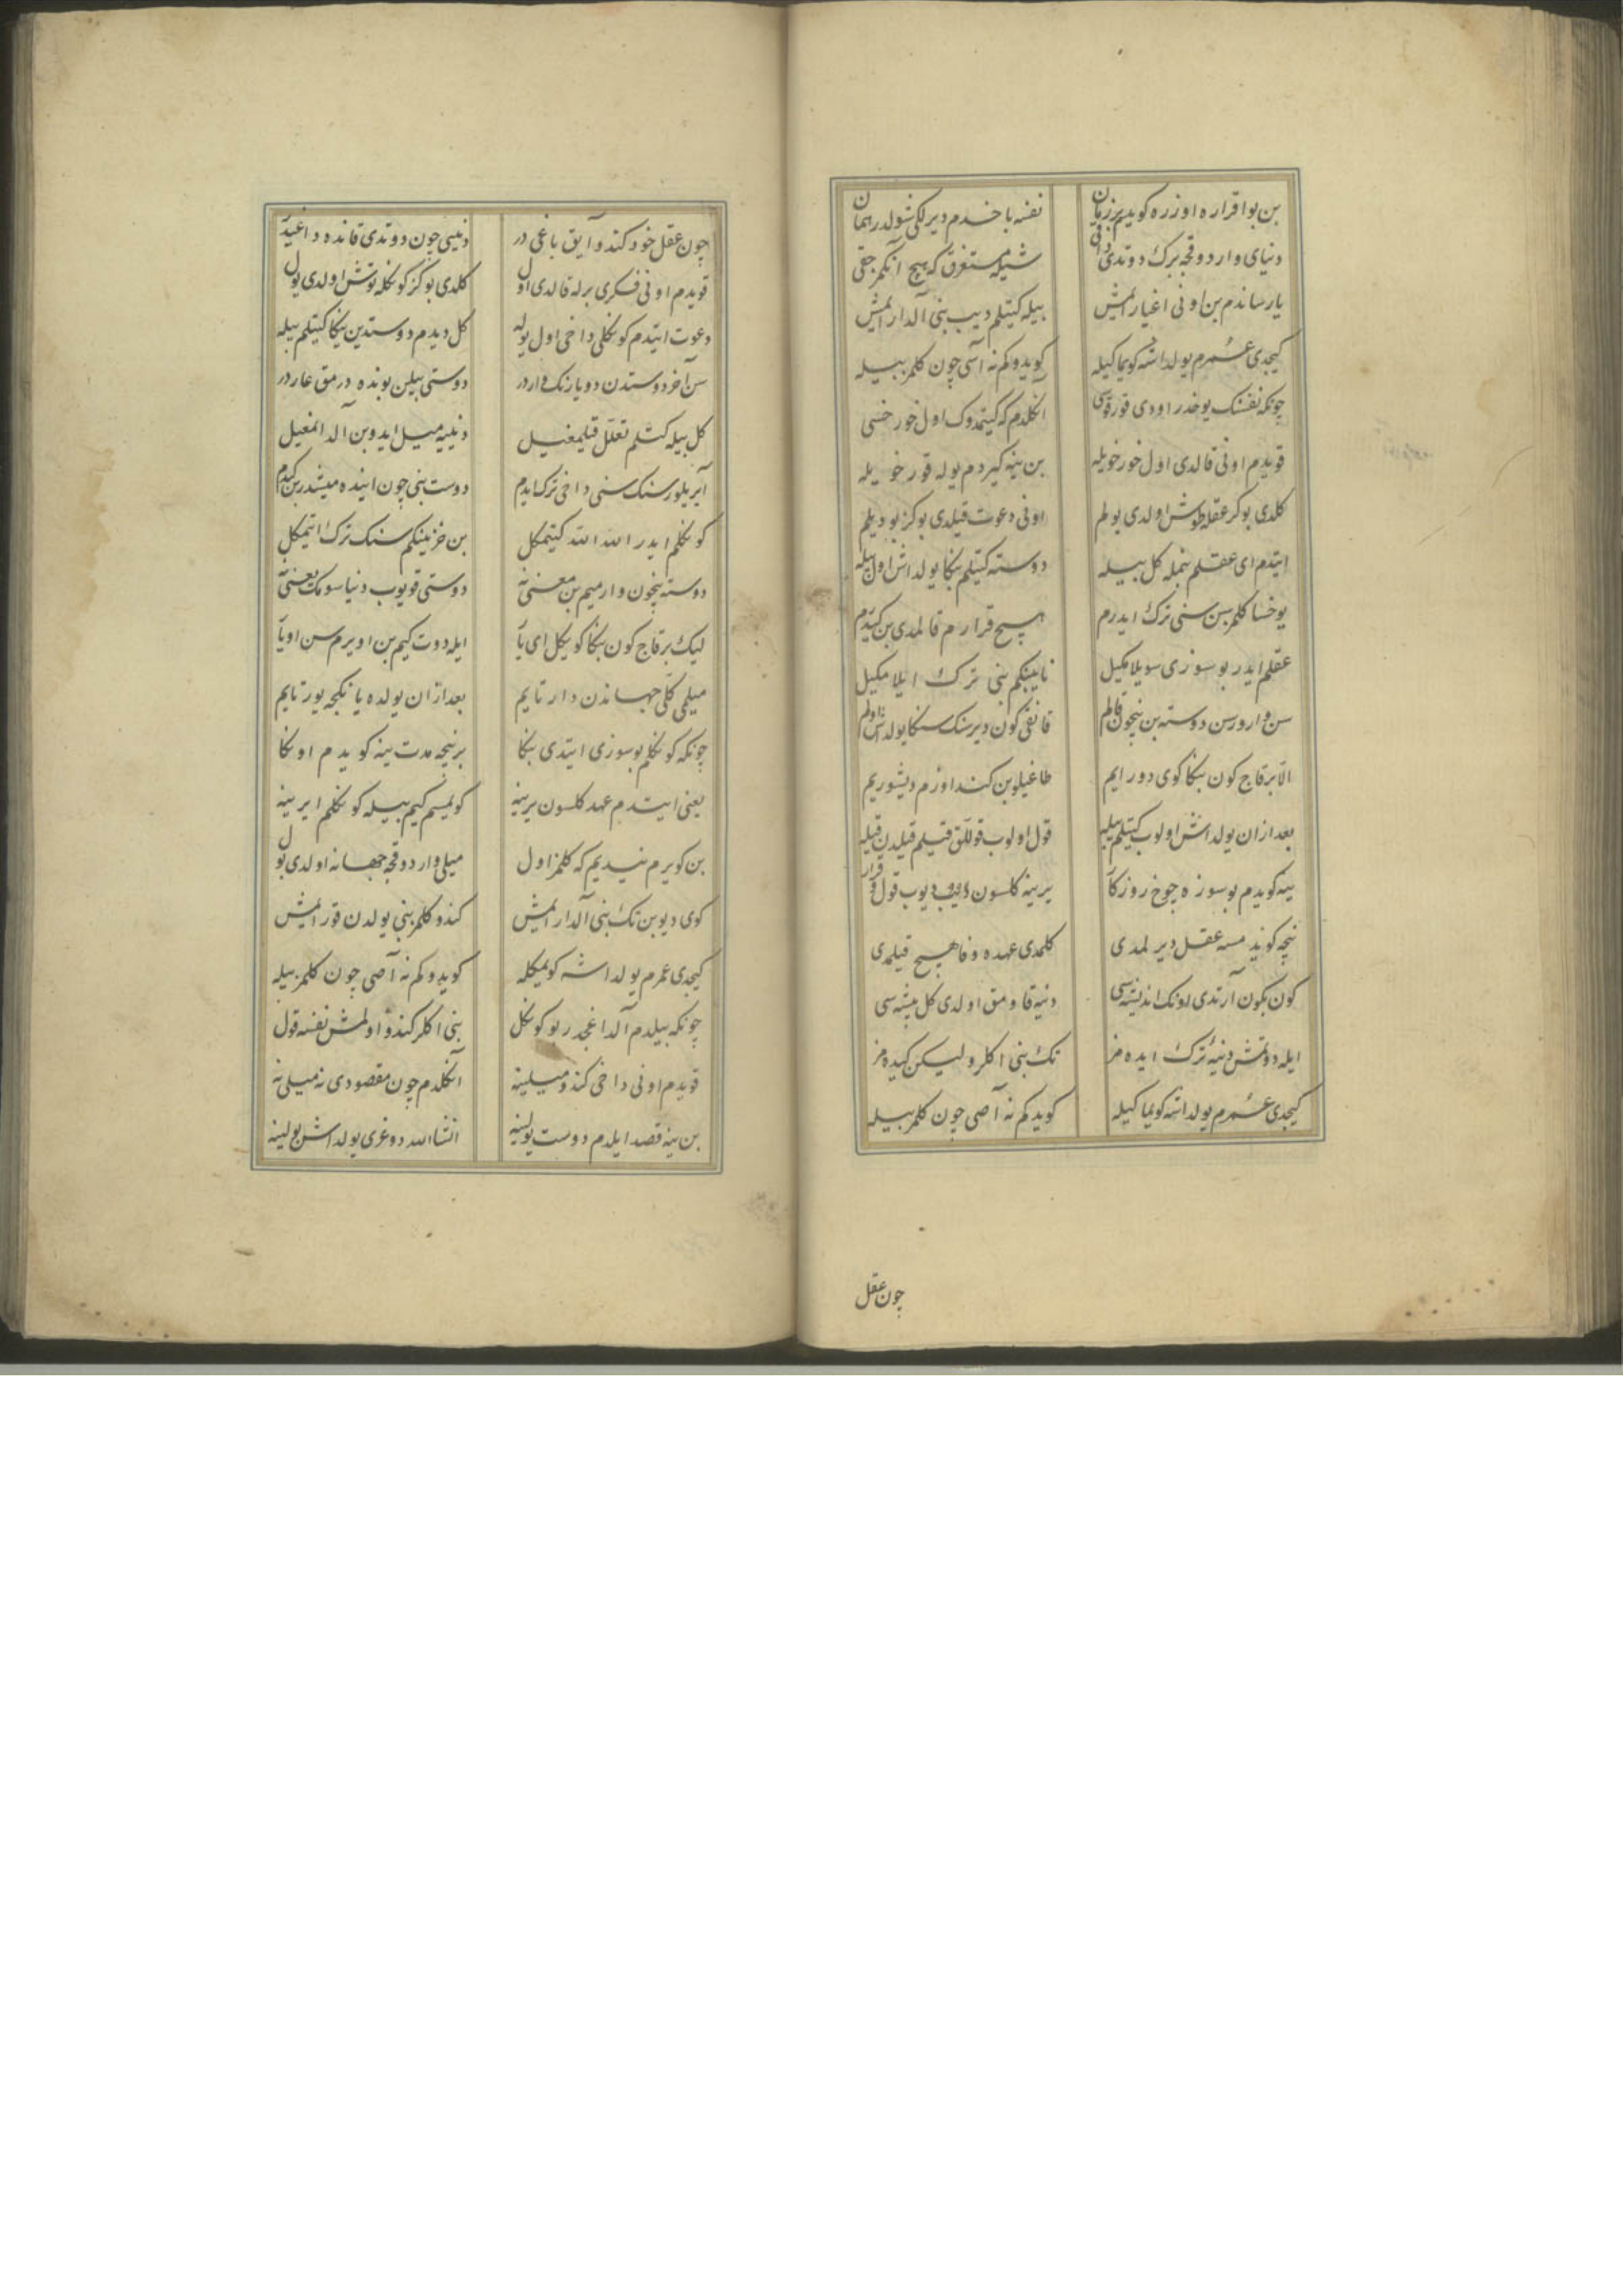 بن بو اقراره اوزره كویدم بر زمان نفسه باخدم دیر لكی شولدر همان
دنیای واردوقجه برك دوتدی داخی شیله مستغرق كه هیچ آنكمز حقی
یار ساندم بن اونی اغیار المیش بیله كیتلم دیب بنی آلدار المش
كیجدی عمرم یولداشه كویماكیله كویدوكم نه آسی چون كلمز بیله
چونكه نفسنك یوخدر اودی قورقوسی انكلدم كه كیتمدوك اول خور خسی
قویدم اونی قالدی اول خور خویله بن ینه كیردم یوله قور خویله
كلدی بو كز عقله طوش اولدی یولم اونی دعوت قیلدی بو كز بو دیلم
ایتدم ای عقلم بنمله كل بیله دوسته كیتلم بنكا یولداش اول بیله
یوخسا كلمزسن سنی ترك ایدرم هیچ قرارم قالمدی بن كیدرم
عقلم ایدر بو سوزی سویلامكیل نایینكم بنی ترك ایلامكیل
سن وارورسن دوسته بن نیچون قالم قانقی كون دیرسنك سنكا یولداش اولم
الا بر قاچ كون بنكا كوی دورایم طاغیلوبن كند اوزم دیشوریم
بعد ازان یولداش اولوب كیتلم بیله قول اولوب قوللق قتیلم قیلدن قیله
ینه كویدم بو سوزه چوخ روزكار یرینه كلسون دییب دیوب قول و قرار
نیچه كویدمسه عقل دیرلمدی كلمدی عهده وفا هیچ قیلمدی
كون بكون آرتدی اونك اندیشه‌سی دنیه قاومق اولدی كل پیشه‌سی
ایله دوتمش دنیه ترك ایده‌مز تك بنی اكلر ولیكن كیده‌مز
كیجدی عمرم یولداشه كویماكیله كویدكم نه آصی چون كلمز بیله
چون عقل
چون عقل خود كندو آیق باغی در دنیسی چون دوتدی قانده داغیدر
قویدم اونی فكری برله قالدی اول كلدی بو كز كونكله توش اولدی یول
دعوت ایتدم كونكلی داخی اول یوله كل دیدم دوستدین یكا كیتلم بیله
سن آخر دوستدن دویارنك واردر دوستی بیلن بونده درمق عاردر
كل بیله كتلم تعلل قیلمغیل دنییه میل ایدوبن آلدانمغیل
آیریلورسنك سنی داخی ترك ایدم دوست بنی چون اینده میشدر بن كیدم
كونكلم ایدر الله الله كیتمكل بن خزینكم سنك ترك ایتمكل
دوسته نیچون وارمیم بن معنی نه دوستی قویوب دنیا سومك یعنی نه
لیك بر قاچ كون بنكا كویكل ای یار ایله دوت كیم بن اویرم سن اویار
میلمی كلی جهاندن دارتایم بعد ازان یولده یانكجه یورتایم
چونكه كونكلم بو سوزی ایتدی بنكا بر نیجه مدت ینه كویدم اونكا
یعنی ایتدم عهد كلسون یرینه كولیسم كیم بیله كونكلم ایرینه
بن كویرم نیدیم كه كلمز اول میلی واردوقجه جهانه اولدی بول
كوی دیوبن تك بنی آلدار المش كندو كلمز بنی یولدن قور المیش
كیجدی عمرم یولداشه كویمكله كویدوكم نه آصی چون كلمز بیله
چونكه بیلدم آلداغجدر بو كونكل بنی اكلر كندو اولمش نفسه قول
قویدم اونی داخی كندو میلینه انكلدم چون مقصودی نه میلی نه
بن ینه قصد ایلدم دوست یولینه انشاالله دوغری یولداش بولینه